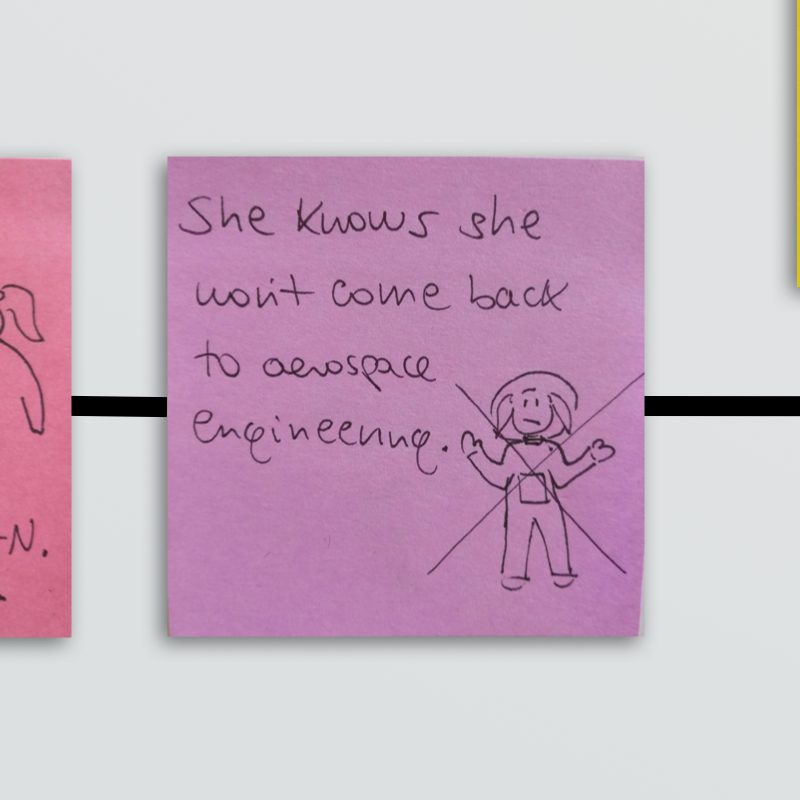 She knows she
won't come back
to aerospace
engineering.
-N.